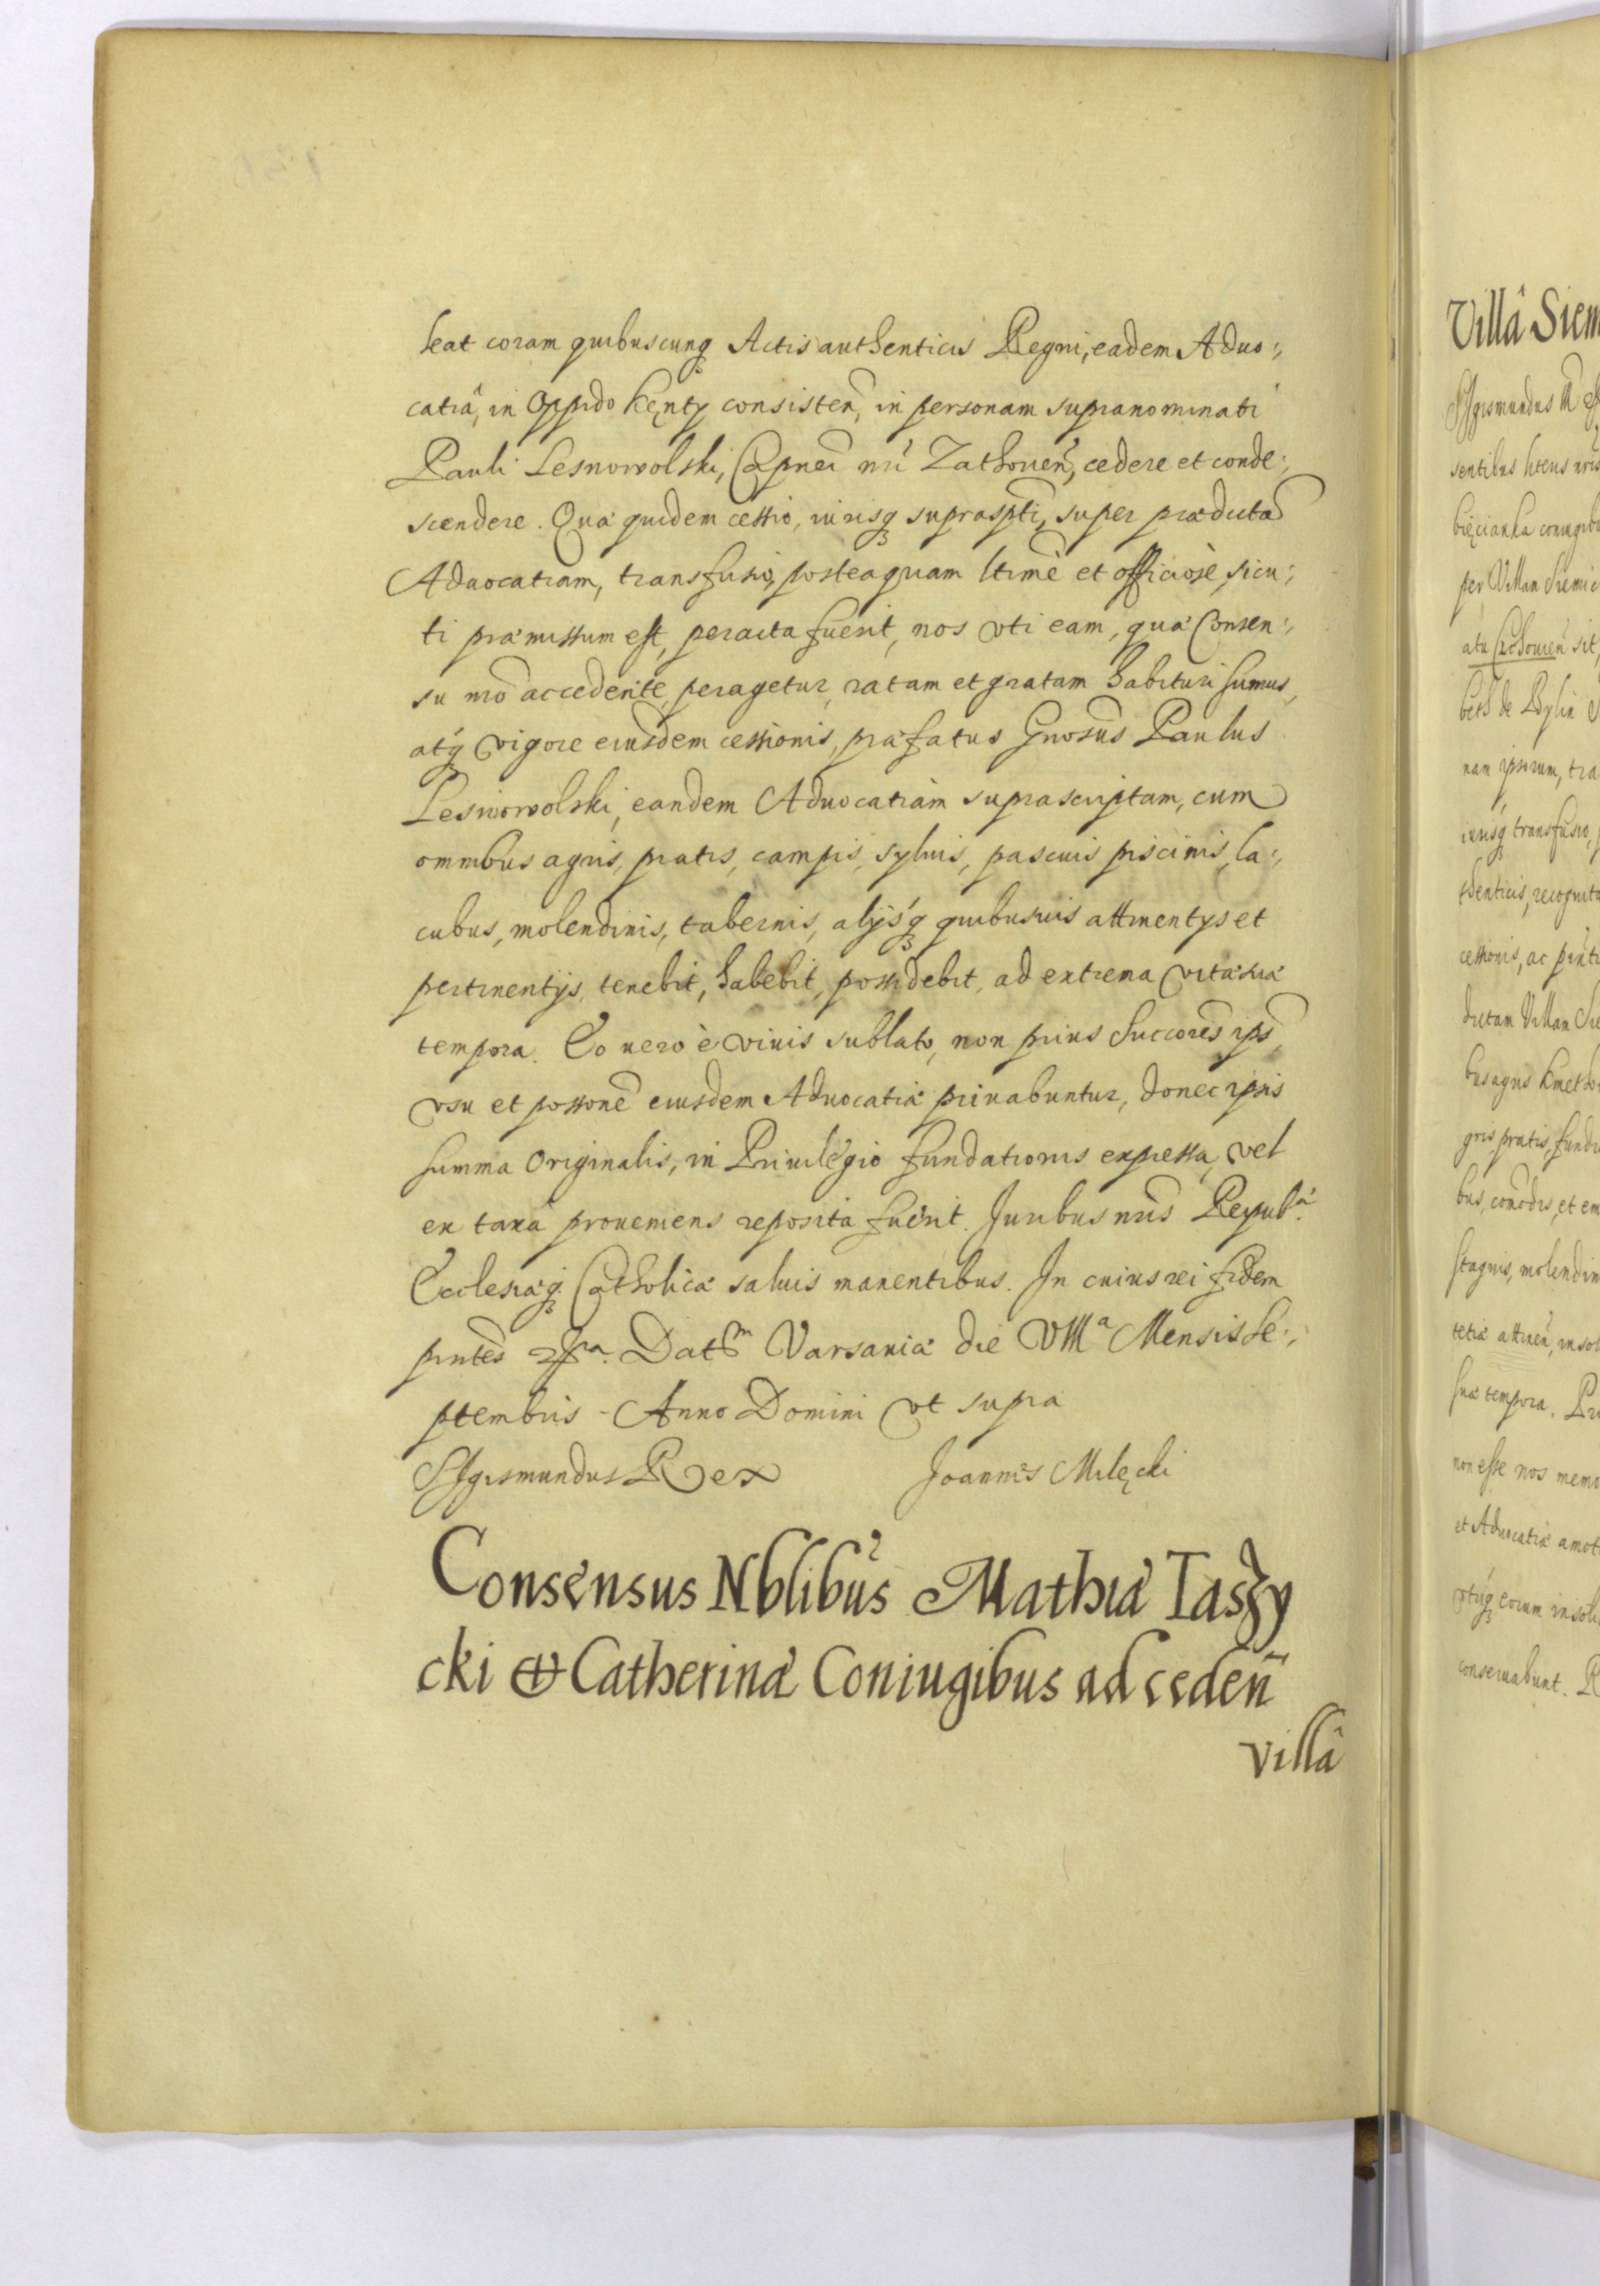 leat coram quibuscunq Actis authenticis Regni, eadem Aduo:,
catiâ, in Oppido Kęnty consisteñ, in personam supranominati
Pauli Lesnowolski, Capnei nri Zathorieñ, cedere et conde:,
scendere. Quæ quidem cessio, iurisq suprasptj, super prædictã
Aduocatiam, transfusio, posteaquam ltimè et officiosè, sicu:,
ti præmissum est, peracta fuerit, nos vti eam, quæ Consen:,
su nro accedente, peragetur, ratam et gratam habituri sumus,
atq vigore eiusdem cessionis, præfatus Gnosus Paulus
Lesnowolski, eandem Aduocatiam suprascriptam, cum
omnibus agris, pratis, campis, syluis, pascuis piscinis, la:,
cubus, molendinis, tabernis, alijsq quibusuis attinentijs et
pertinentijs, tenebit, habebit, possidebit, ad extrema vitæ suæ
tempora. Eo uero è viuis sublato, non prius Succores ips,
vsu et possone eiusdem Aduocatiæ priuabuntur, donec ipsis
summa Originalis, in Priuilegio fundationis expressa, vel
ex taxa proueniens reposita fuerit. Juribus nris Reipubæ
Ecclesiæq Catholicæ saluis manentibus. In cuius rei fidem
pntes Datm Varsauiæ die VIIIa Mensis Se:,
ptembris - Anno Domini vt supra
Sigismundus Rex Joannes Milęcki
Consensus Nblibus Mathiæ Iaszy
cki et Catherinæ Coniugibus ad cedeñ
villâ
Villâ Siem
Sigismundus
sentibus ltens nris
bięcianka coniugib
per, Villam Siemic
atu Czchouien sit,
beth de Bylin
nam ipsorum, tra
iurisq transfusio,
thenticis, recognita
cessionis, ac pnti
dictam Villam Sie
bus agris Kmetho
gris, pratis, fundi
bus, comodis, et em
stagnis, molendin
tetiæ attineñ, in sol
suæ tempora. Pr
non esse nos memo
et Aduocatiæ amot
vtiq eorum in soli
conseruabunt. R